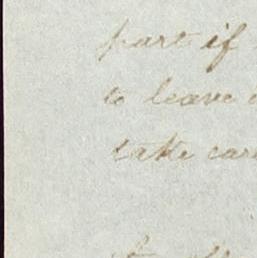 part if
to leave
take care